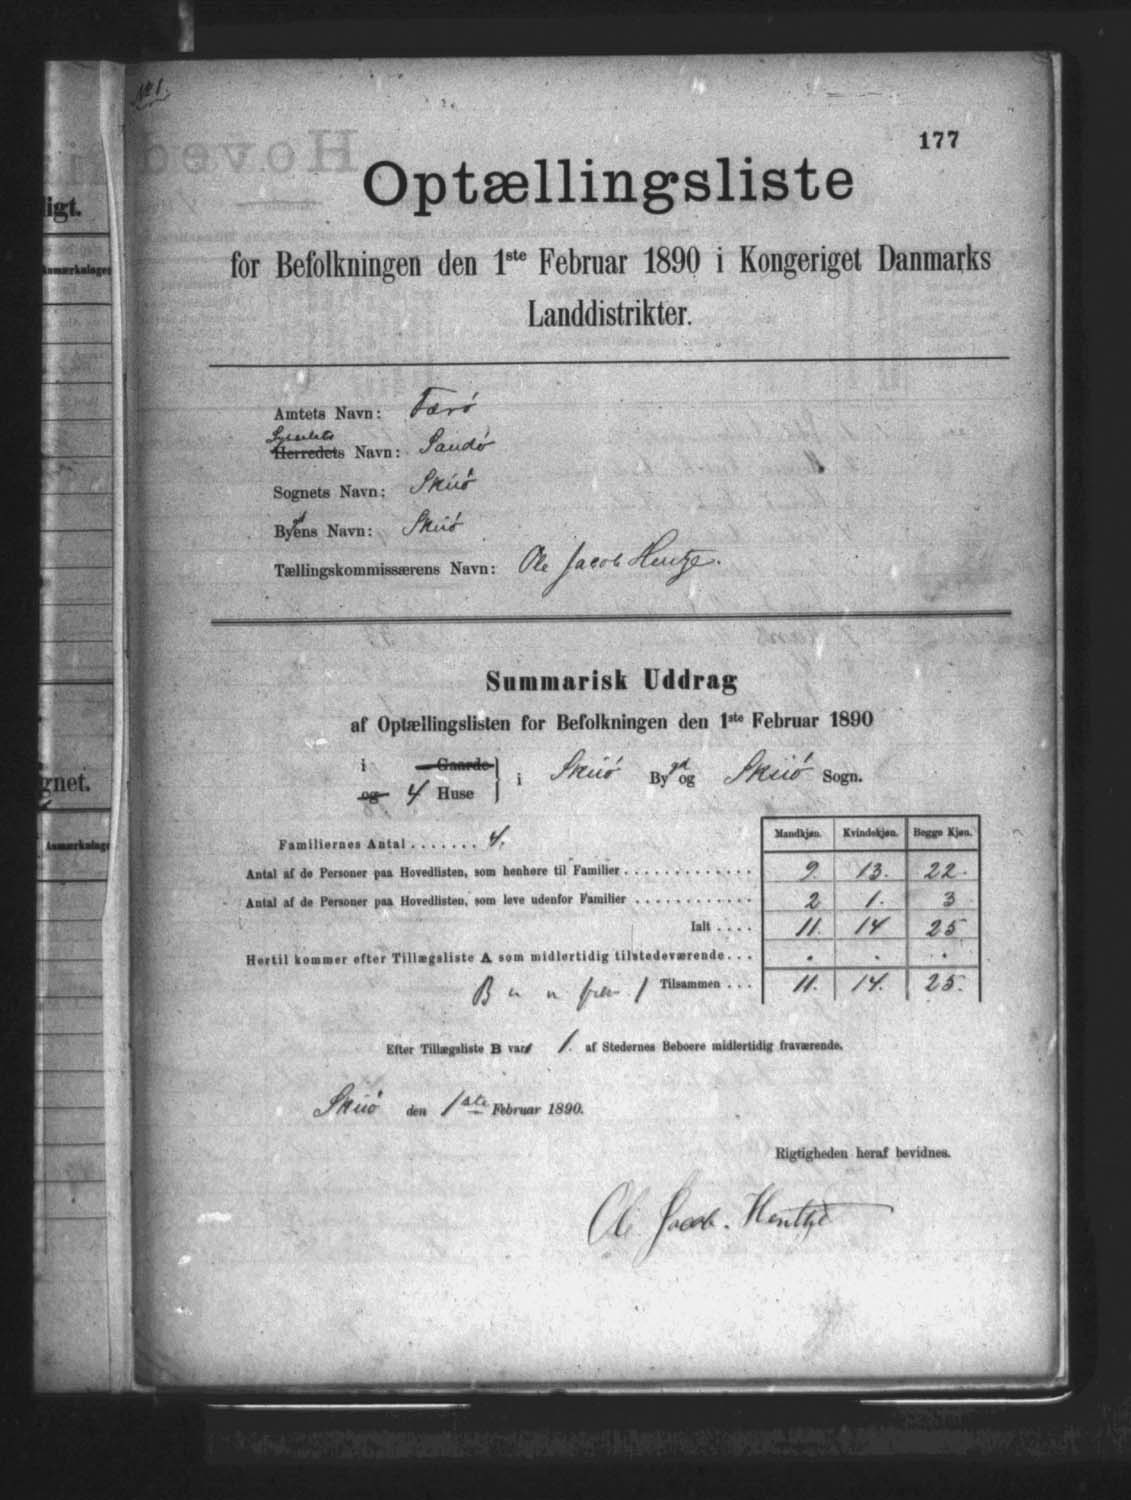 No 1.
177
Optællingsliste
for Befolkningen den 1ste Februar 1890 i Kongeriget Danmarks
Landdistrikter.
Amtets Navn: Færö
Sysselets
Herredets Navn: Sandö
Sognets Navn: Skuö
Bygdens Navn: Skuö
Tællingskommissærens Navn: Ole Jacob Hentze.
Summarisk Uddrag
af Optællingslisten for Befolkningen den 1ste Februar 1890
i Gaarde
og 4 Huse } i Skuö Bygd og Skuö Sogn.
Mandkjøn. Kvindekjøn. Begge Kjøn.
Familiernes Antal . . . . . . . 4.
Antal af de Personer paa Hovedlisten, som henhøre til Familier . . . . . . . . . . . . . 9. 13. 22.
Antal af de Personer paa Hovedlisten, som leve udenfor Familier . . . . . . . . . . . . 2 1. 3
Ialt . . . . 11. 14 25
Hertil kommer efter Tillægsliste A som midlertidig tilstedeværende . . . . . .
B " " 1 Tilsammen . . . 11. 14. 25.
Efter Tillægsliste B var 1. af Stedernes Beboere midlertidig fraværende.
Skuö den 1ste Februar 1890.
Rigtigheden heraf bevidnes.
Ole Jacob. Hentze
ligt.
Anmærkninger
gnet.
Anmærkninger